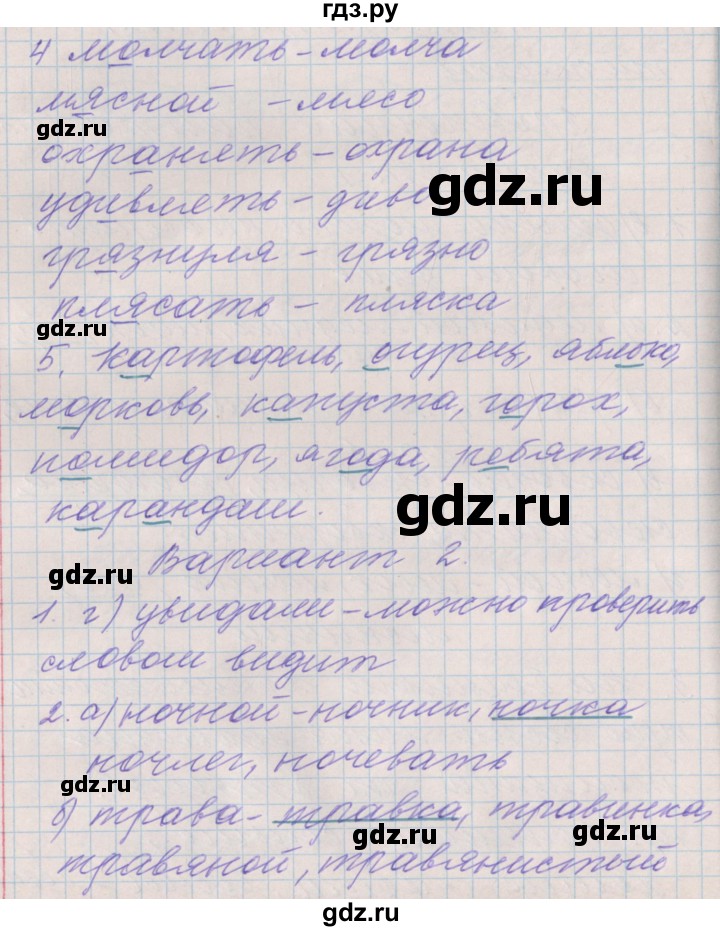 гдз.ру
4 молчать – молча
мясной – мясо
gdz.ru
охранять – охрана
gdz.ru
удивлять – диво
грязнуля – грязно
плясать – пляска
gdz.ru
5. Картофель, огурец, яблоко,
морковь, капуста, горох,
помидор, ягода, ребята,
gdz.ru
карандаш.
Вариант 2.
gdz.ru
1. г) увидали – можно проверить
словом видит
2. а) ночной – ночник, ночка
ночлег, ночевать
gdz.ru
б) трава – травка, травинка,
gdz.ru gdz.ru
травяной, травянистый
gdz.ru